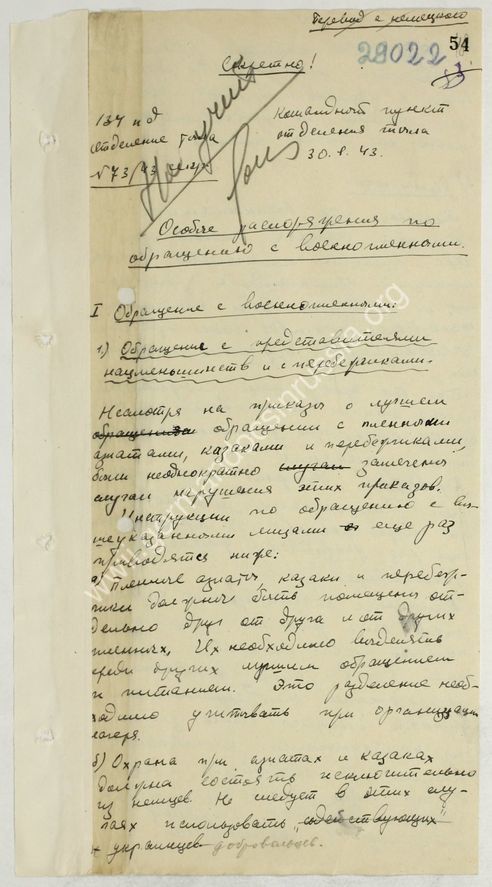 Перевод с немецкого
54
29022
Секретно!
134 пд
Отделение тыла
N 73/43 секр.
Командный пункт
отделения тыла
30.8.43.
Особые распоряжения по
обращению с военнопленными.
I Обращение с военнопленными:
1) Обращение с представителями
нацменьшинств и с перебежчиками.
Несмотря на приказы о лучшем
обращении обращении с пленными
азиатами, казаками и перебежчиками,
были неоднократно случаи замечены
случаи нарушения этих приказов.
Инструкции по обращению с вы-
шеуказанными лицами еще раз
приводятся ниже:
а) Пленные азиаты, казаки и перебеж-
чики должны быть помещены от-
дельно друг от друга и от других
пленных, Их необходимо выделять
среди других лучшим обращением
и питанием. Это разделение необ-
ходимо учитывать при организации
лагеря.
б) Охрана при азиатах и казаках
должна состоять исключительно
из немцев. Не следует в этих слу-
чаях использовать "содействующих"
украинцев добровольцев.
www.germandocsinrussia.org